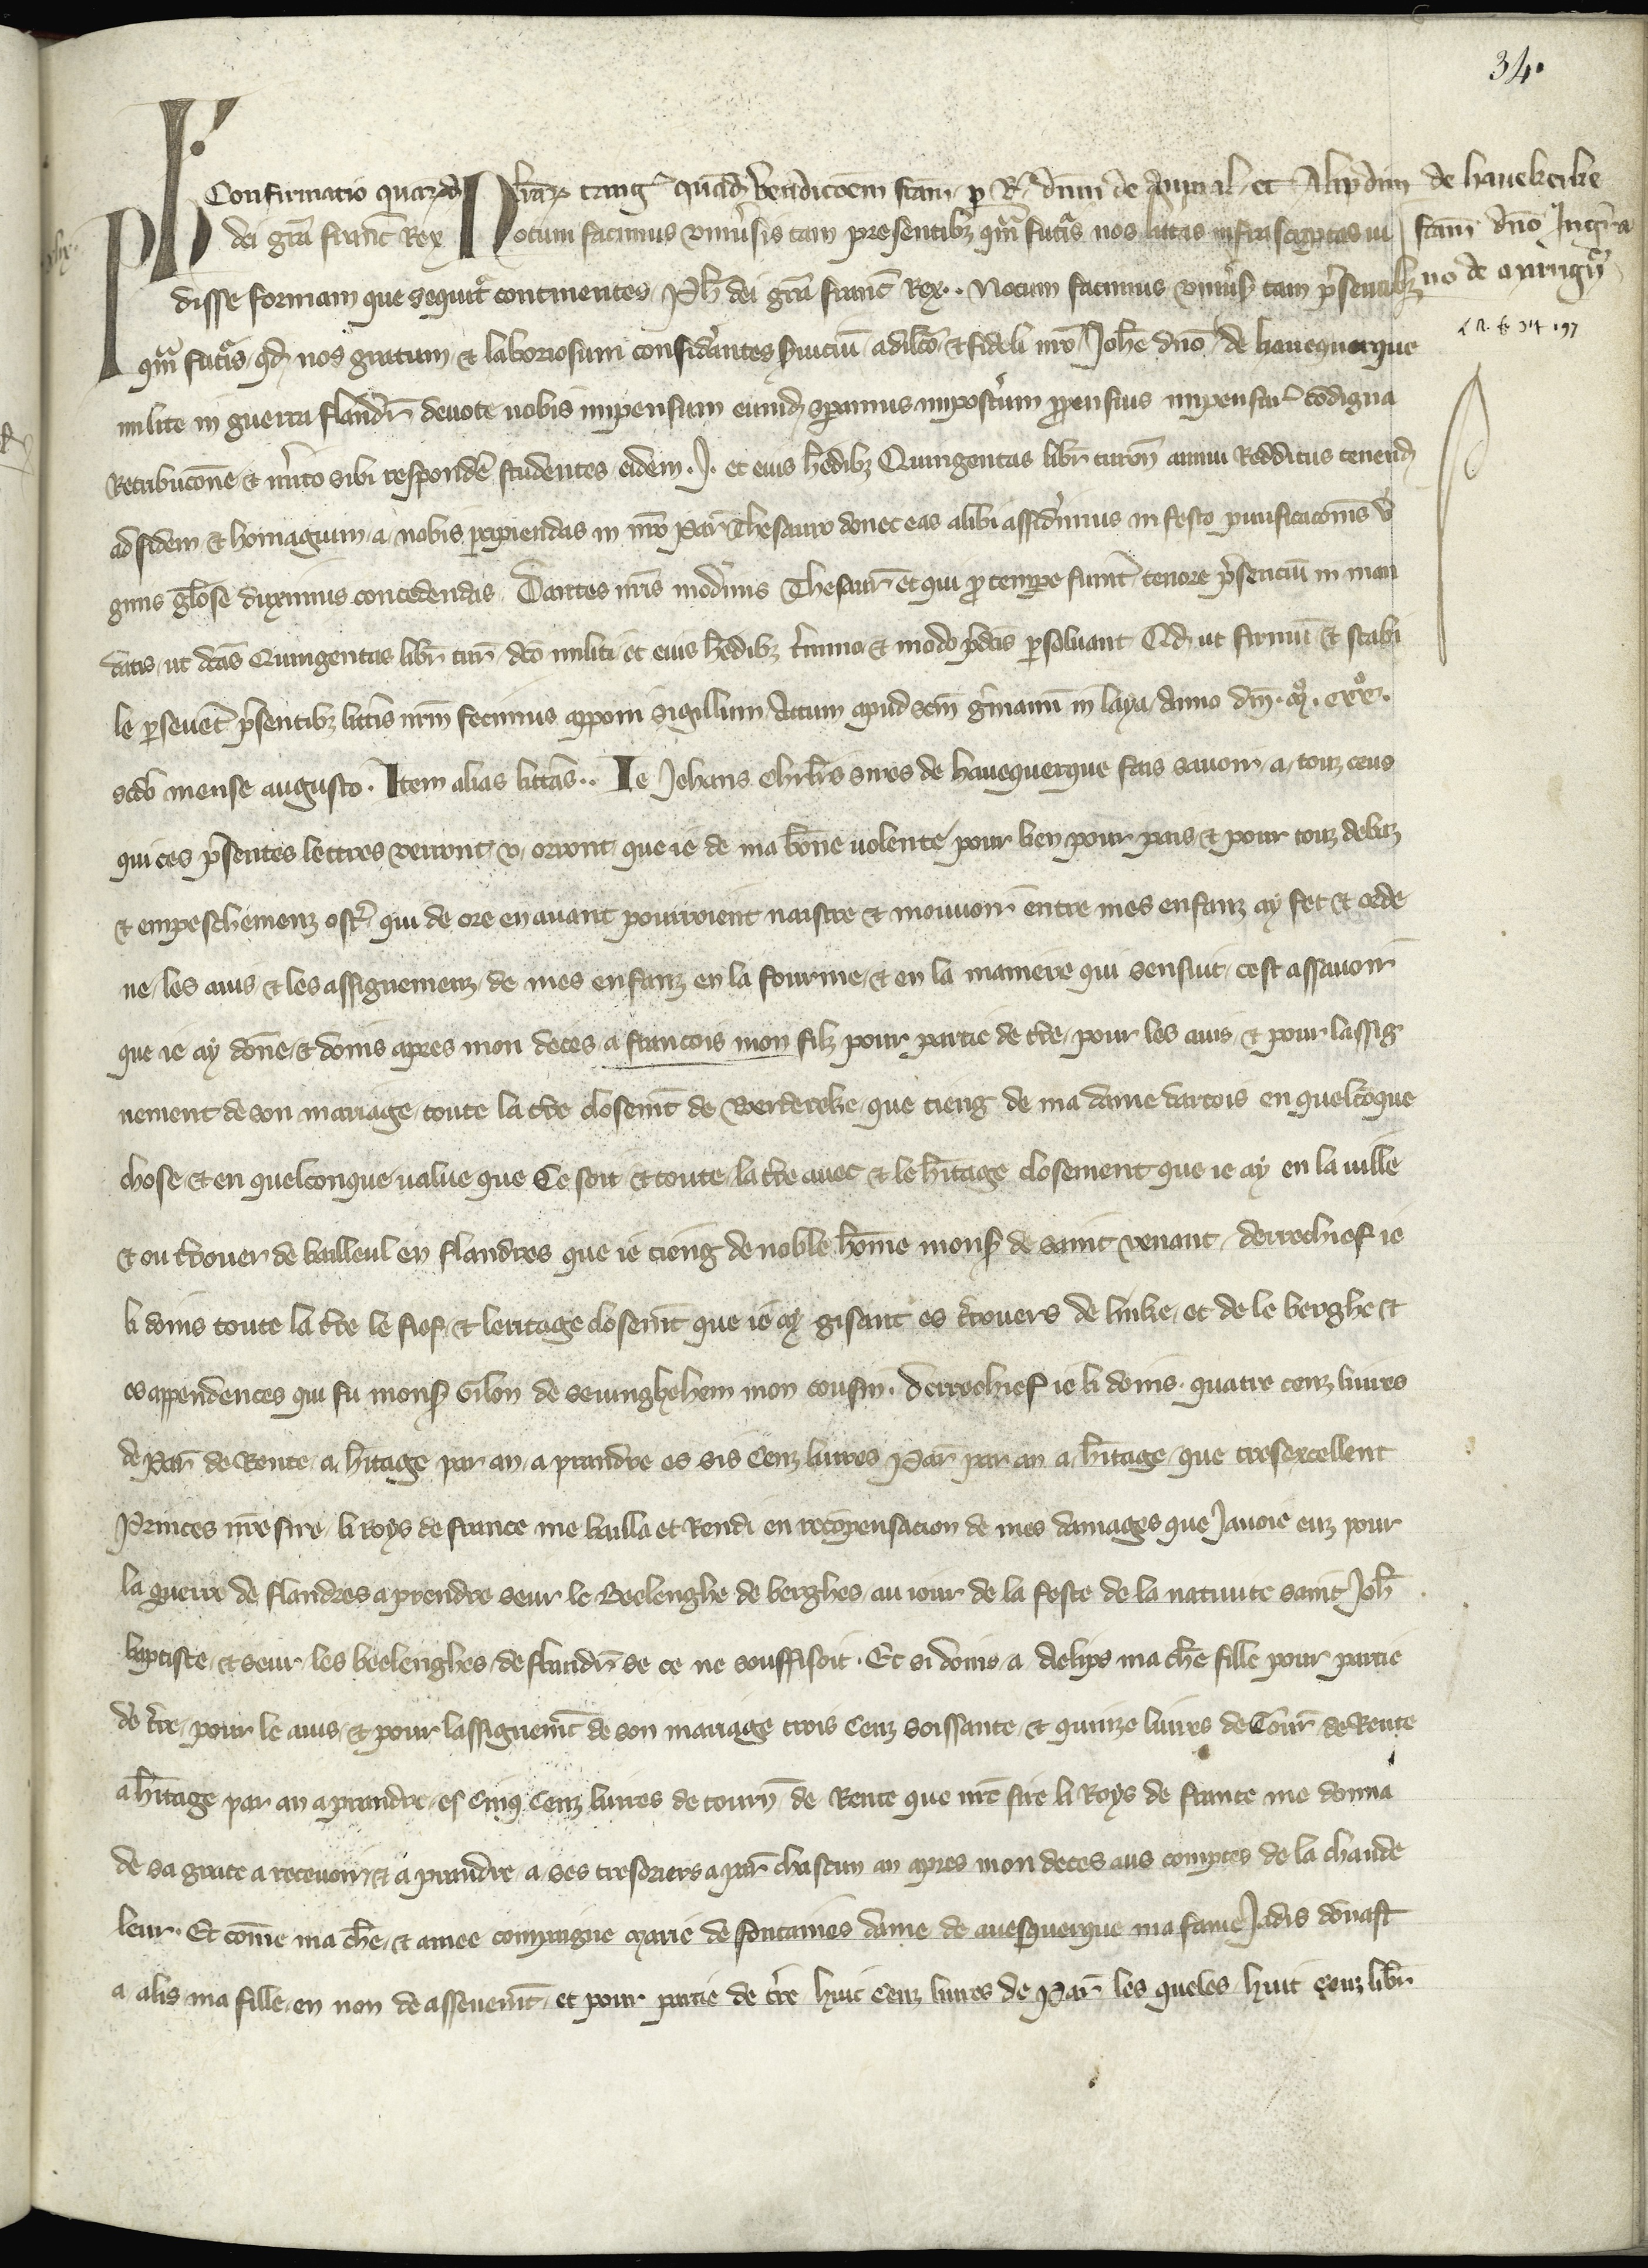 34.
Confirmatio quarūdā lr̄arꝝ tang̃ quādꝫ vendicōem fcām p R. dn̄m de et Alipdim de havekerke
Ph̃ dei gr̄a franc̄ Rex Notum facimus vniūsis tam presentibꝫ qm̄ futˀis nos litt̄as infrascriptas vi fcām dn̄o Ingˀra
disse formam que sequitˀ continentes / Ph̃ dei gr̄a franc̄ Rex.. Notum facimus vniūs tam pˀsentibꝫ no de
qm̄ futˀis / qd̄ nos gratum & laboriosum considˀantes sˀuiciū a dilc̄o & fideli nr̄o Joh̄e dn̄o de hauequerque
milite in guerra flandr̄ deuote nobis impensum eumdꝫ spˀamus impostˀum ꝓpensius impensurˀ cōdigna
Retribucōne & mˀito sibi respondˀe studentes eidem .J. et eius hˀedibꝫ Quingentas libr̄ turon̄ annui Redditus tenend̄
ad fidem & homagium / a / nobis percipiendas in nr̄o Par̄ Thesauro donec eas alibi assidˀimus in festo purificacōnis Vˀ
ginis gl̄ose duximus concedendas Dantes nr̄is modˀnis Thesaur̄ et qui ꝓ tempˀe fuerint tenore pˀsenciū in man
datis / ut dc̄as Quingentas libr̄ tur̄ dc̄o militi et eius hˀedibꝫ tˀmino & modo pˀdc̄is ꝑsoluant Qd̄ ut firmū & stabi
le ꝑseuˀet pˀsentibꝫ litt̄is nr̄m fecimus apponi sigillum Actum apud scm̄ gˀmanū in laya / Anno dn̄i . mͦ . cccͦ.
scdo mense augusto . Item alias litt̄as .. Ie Jehans chrl̄rs sires de hauequerque fais sauoir / a / touz ceus
qui ces pˀsentes lettres verront / v / orront / que ie de ma bōne volente / pour bien pour pais & pour touz debaz
& empeschemenz ostˀ qui de ore en auant pourroient naistre & mouuoir entre mes enfanz ay fet & orde
ne / les auis & les assignemenz / de mes enfanz en la fourme / & en la maniere qui sensiut / cest assauoir
que ie ay dōne / & doins apres mon deces / a francois mon filz pour partie de tˀre / pour les auis & pour lassig
nement de son mariage / toute la tˀre closemt̄ de Werdereke / que tieng de ma dame dartois en quelcōque
chose / & en quelconque value que ce soit / & toute / la tˀre auec & le hˀitage closement que ie ay en la uille
& ou tˀrouer de bailleul en flandres que ie tieng de noble hōme mons̄ de saint venant / derrechief ie
li doins toute la tˀre le fief / & leritage closemt̄ que ie ay gisant es tˀrouers de linke / et de le berghe &
es appendences qui fu mons̄ Gilon de seuinghehem mon cousin . Derrechief ie li doins . quatre cenz liures
de Par̄ de Rente / a / hˀitage par an / a prandre es sis cenz liures Par̄ par an a hˀitage / que tres excellent
Princes nr̄e sire / li Roys de france me bailla et Rendi en recōpensacion de mes damages que Jauoie euz pour
la guerre de flandres a prendre seur le Beelenghe de berghes / au iour de la feste de la natiuite saint Joh̃
baptiste / & seur / les beelenghes / de flandr̄ se ce ne souffisoit . Et si doins / a Aelips ma chˀe fille pour partie
de tˀre / pour le auis / & pour lassignemt̄ de son mariage trois cenz soissante / & quinze liures de Tour̄ de Rente
a hˀitage par an a prandre / es Cinq Cenz liures de tourn̄ de Rente que nr̄e sire li Roys de france me donna
de sa grace a receuoir / & a prandre / a / ses tresoriers a par̄ chascun an apres mon deces aus comptes de la chande
leur . Et cōme ma chˀe / & amee compaigne Marie de fontaines dame de auesquerque ma fame Jadis donast
a / alis / ma fille / en non de assenemt̄ / et pour partie de tˀre huit Cenz liures de Par̄ les queles / huit cenz libr̄